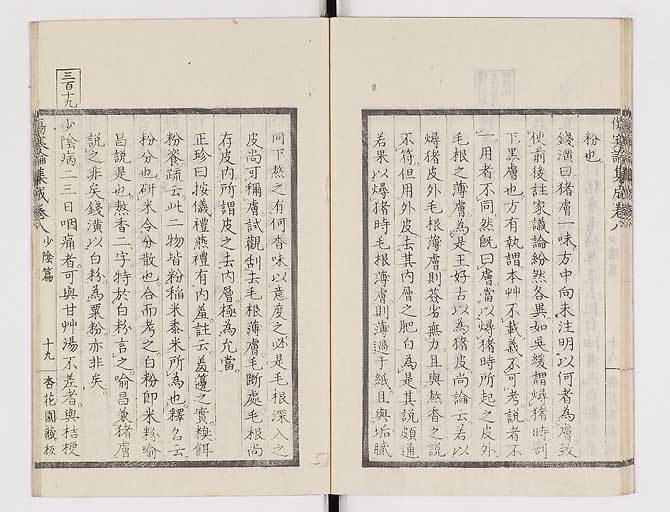 傷寒論集成卷八
粉也
錢潢曰猪膚一味方中向未注明以何者為膚致
使前後註家議論紛然各異如吳綬謂燖猪時刮
下黑膚也方有執謂本艸不載義不可考說者不
一用者不同然既曰膚當以燖猪時所起之皮外
毛根之薄膚為是王好古以為猪皮尚論云若以
燖猪皮外毛根薄膚則簽劣無力且與熬香之說
不符但用外皮去其內層之肥白為是其說頗通
若果以燖猪時毛根薄膚則薄過于紙且與垢膩
同下熬之有何香味以意度之必是毛根深入之
皮尚可稱膚試觀刮去毛根薄膚毛斷處毛根尚
存皮內所謂皮之去內層極為允當
正珍曰按儀禮燕禮有內羞註云羞籩之實糗餌
粉餈疏云此二物皆粉稻米黍米所為也釋名云
粉分也研米令分散也合而考之白粉即米粉喻
昌說是也熬香二字特於白粉言之喻昌兼猪膚
說之非矣錢潢以白粉為粟粉亦非矣
三百十九
少陰病二三日咽痛者可與甘艸湯不差者與桔梗
傷寒論集成卷八 少陰篇 十九 杏花園藏板